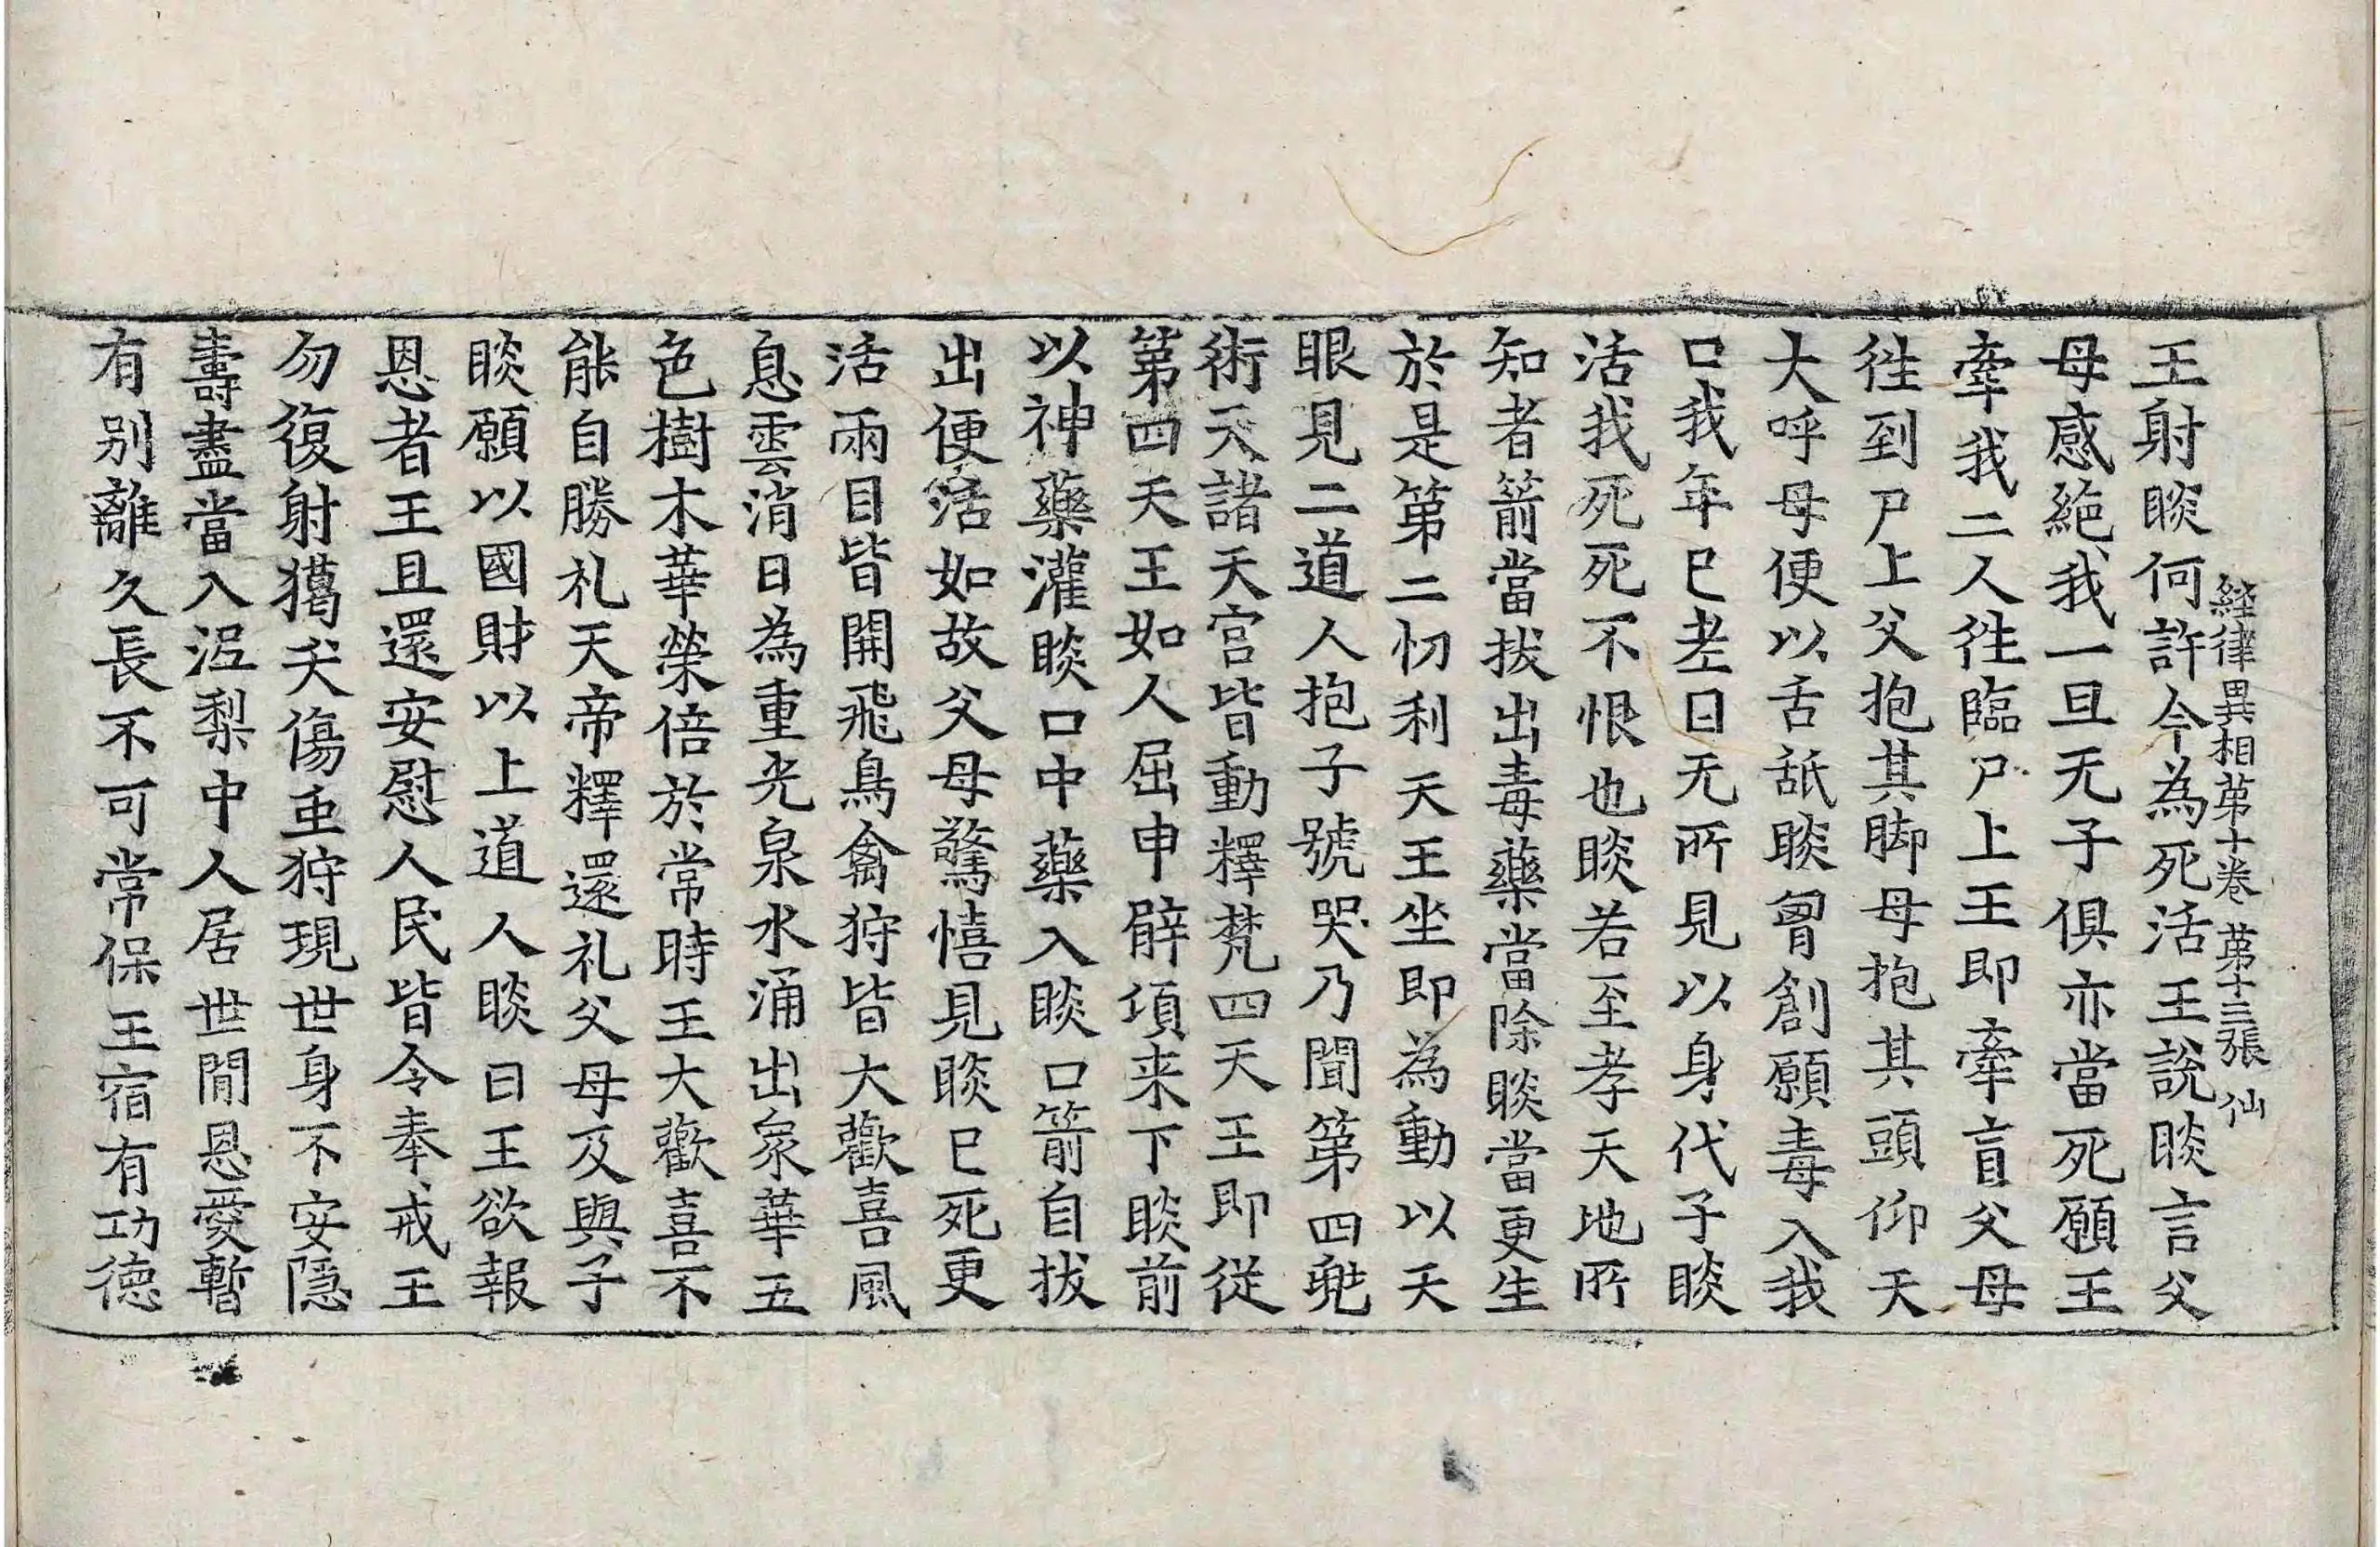 經律異相苐十卷 苐十三張 仙
王射睒何許今為死活王說睒言父
母感絶我一旦无子俱亦當死願王
牽我二人徃臨尸上王即牽盲父母
徃到尸上父抱其脚母抱其頭仰天
大呼母便以舌舐睒胷創願毒入我
口我年已老目无所見以身代子睒
活我死死不恨也睒若至孝天地所
知者箭當拔出毒藥當除睒當更生
於是第二忉利天王坐即為動以天
眼見二道人抱子號哭乃聞第四兜
術天諸天宮皆動釋梵四天王即從
第四天王如人屈申臂項来下睒前
以神藥灌睒口中藥入睒口箭自拔
出便活如故父母驚憘見睒已死更
活兩目皆開飛鳥禽狩皆大歡喜風
息雲消日為重光泉水涌出衆華五
色樹木華榮倍於常時王大歡喜不
能自勝礼天帝釋還礼父母及與子
睒願以國財以上道人睒曰王欲報
恩者王且還安慰人民皆令奉戒王
勿復射獵夭傷䖝狩現世身不安隱
壽盡當入泥梨中人居世閒恩愛暫
有別離久長不可常保王宿有功德